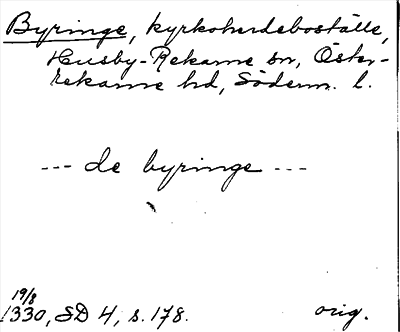 Byringe, kyrkoherdeboställe,
Husby-Rekarne sn, Öster-
rekarne hd, Söderm. l.
--- de byringe ---
19/8
1330, SD 4, s. 178. orig.